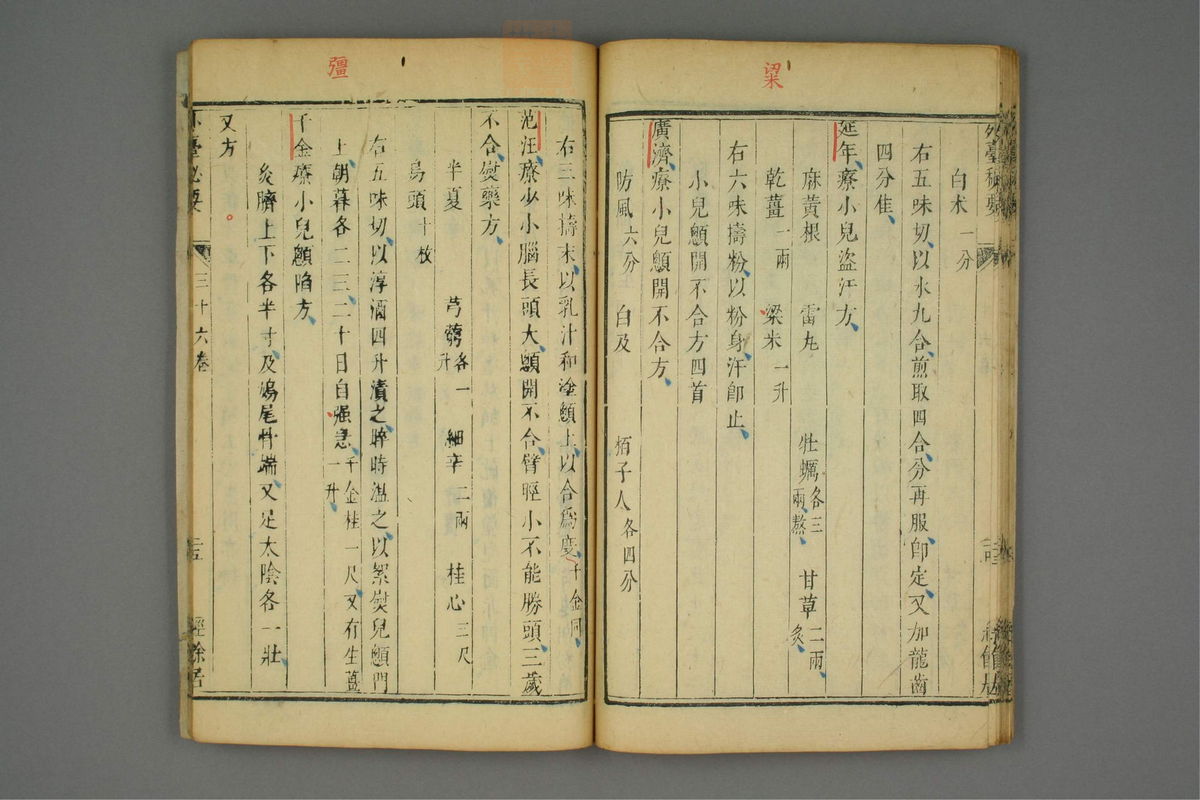 粱
白朮一分
右五味切、以水九合、煎取四合、分再服、卽定、又加龍齒
四分佳、
延年、療小兒盜汗方、
麻黃根 雷丸 牡蠣各三兩熬、 甘草二兩炙、
乾薑一兩 梁米一升
右六味擣粉、以粉身、汗卽止、
小兒顖開不合方四首
廣濟、療小兒顖開不合方、
防風六分 白及 栢子人各四分
彊
右三味擣末、以乳汁和塗顖上、以合爲度、千金同、
范汪、療少小腦長頭大、顖開不合、臂脛小不能勝頭、三歲
不合、熨藥方、
半夏 芎藭各一升 細辛二兩 桂心三尺
烏頭十枚
右五味切、以淳酒四升漬之、晬時溫之、以絮熨兒顖門
上、朝暮各二三、二十日自强急、千金桂一尺、又有生薑一升、
千金療小兒顖陷方、
灸臍上下各半寸、及鳩尾骨端、又足太陰各一壯、
又方。
外臺祕要 三十六卷 二五 經餘居